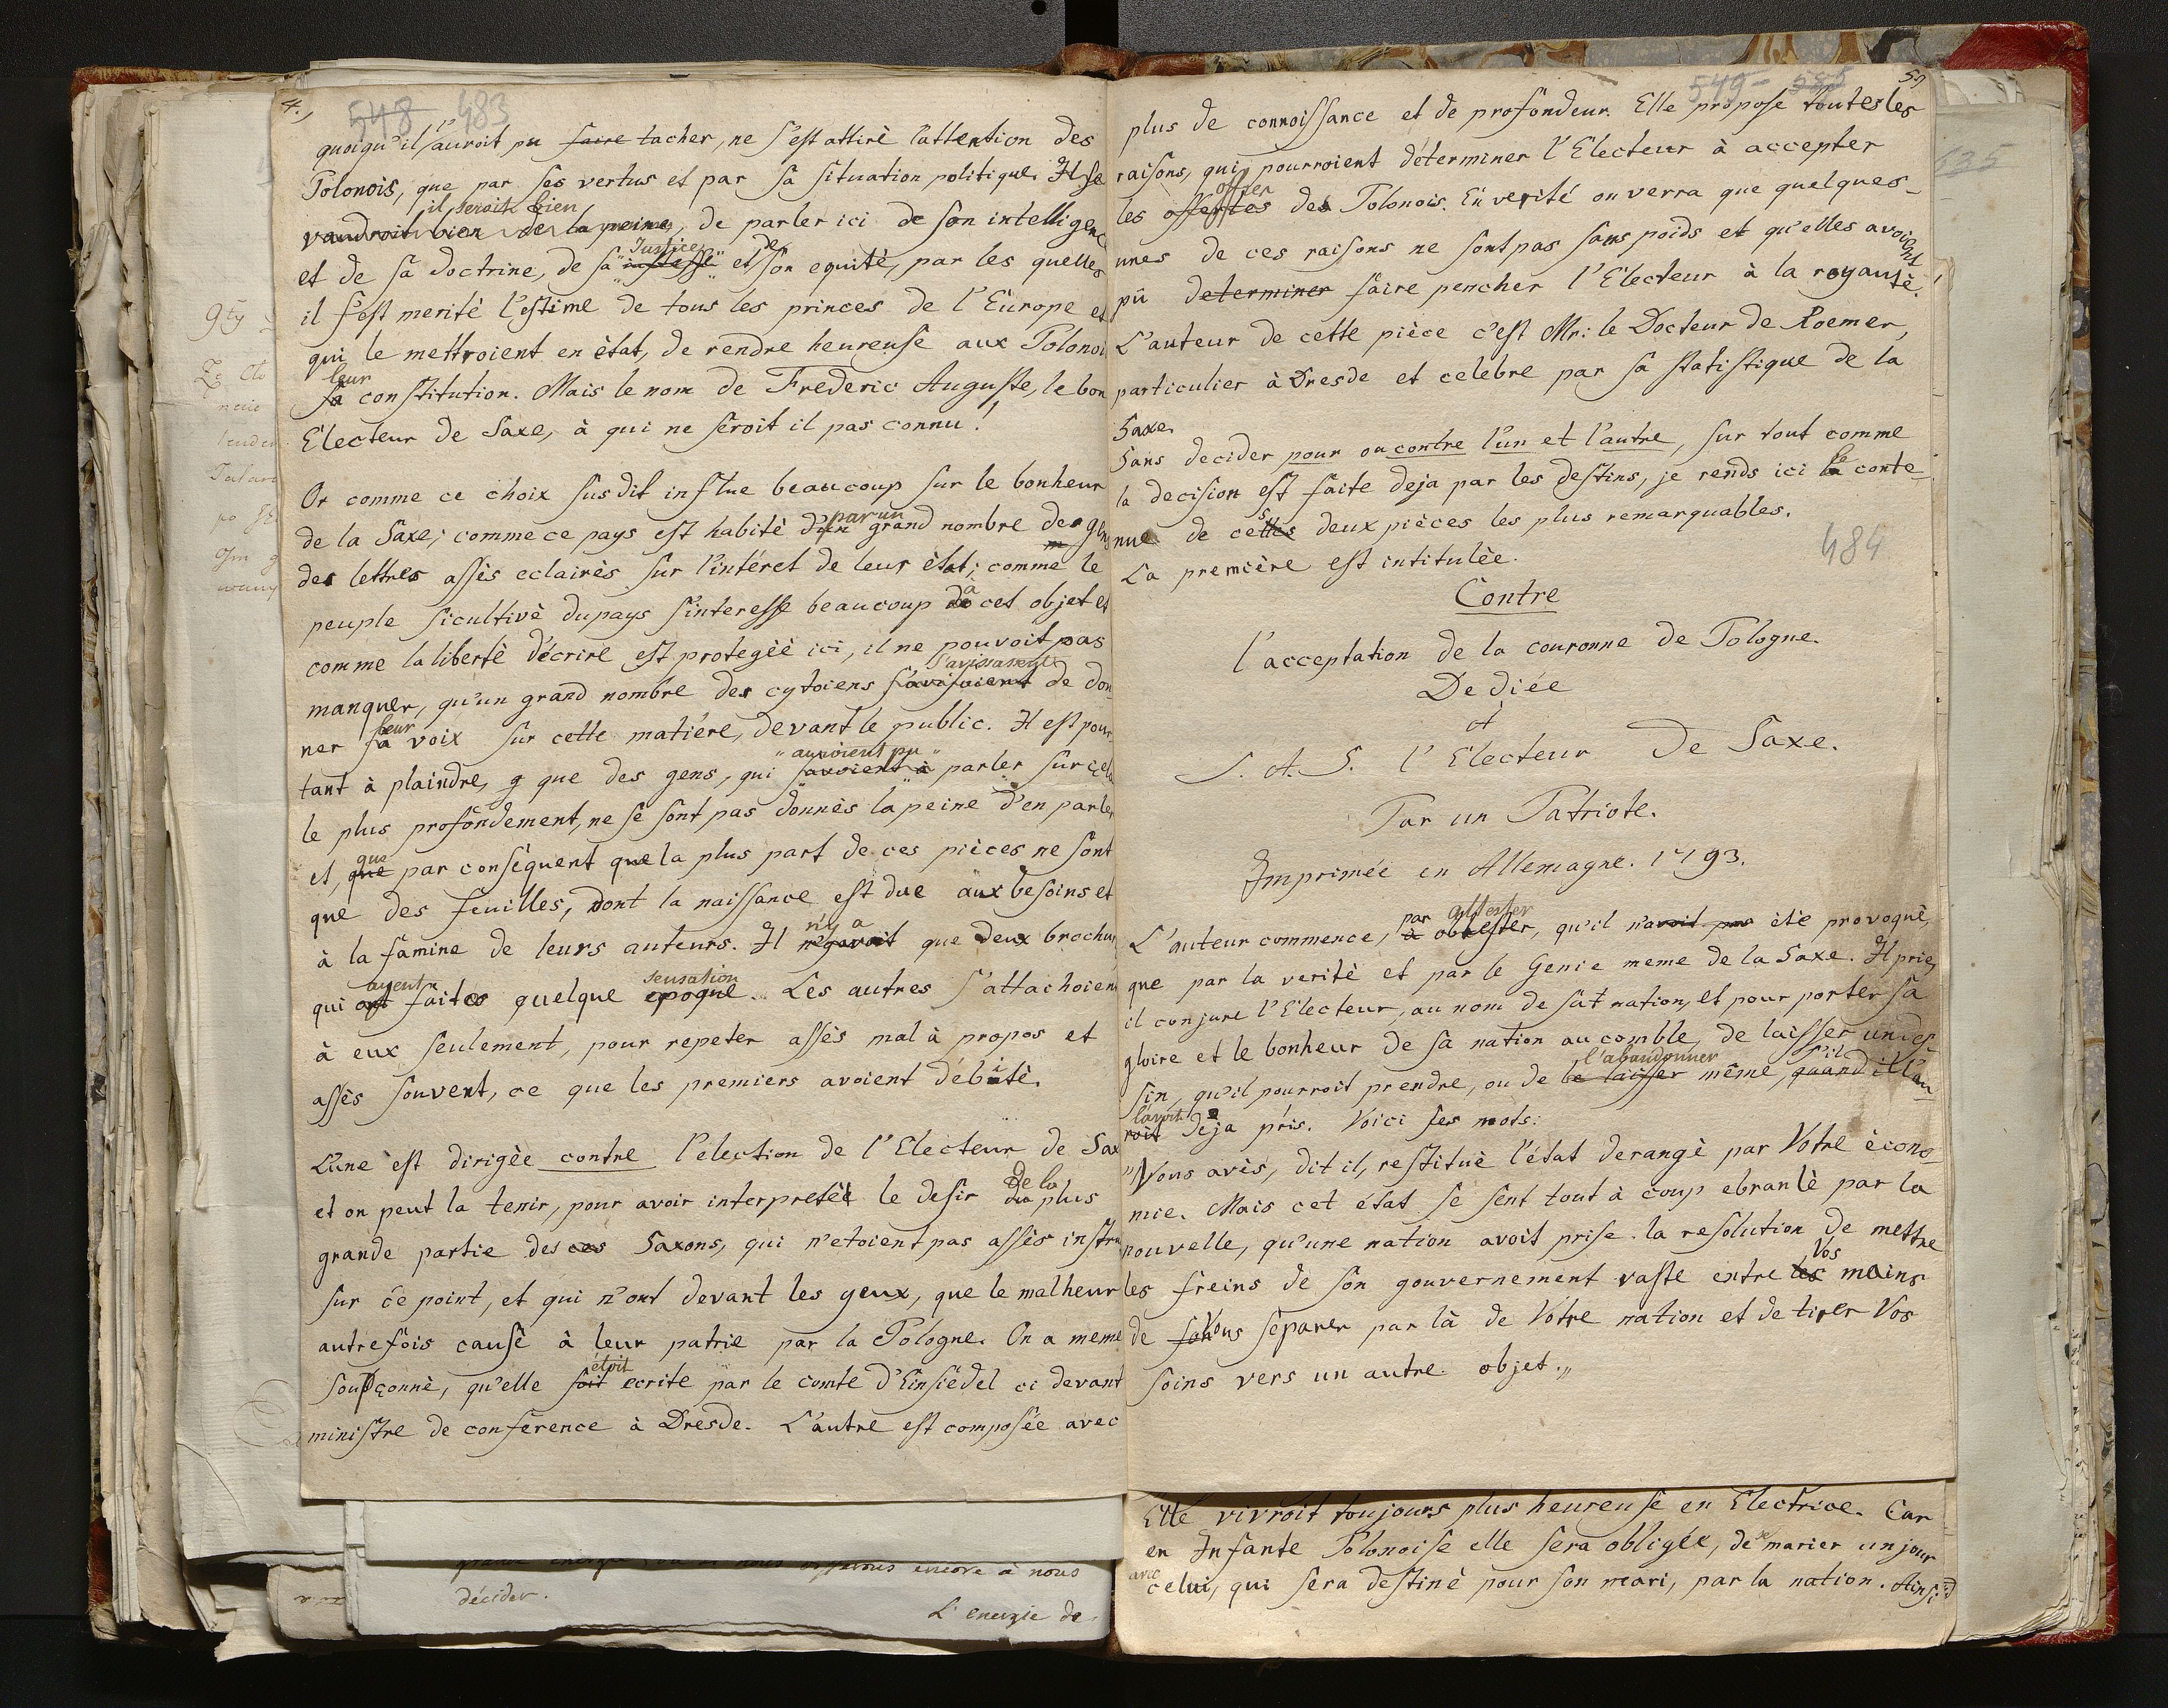 4.)
548 483
quoiqu'il l'auroit pu faire tacher, ne s'est attirè l'attention des
Polonois, que par ses vertus et par sa situation politique. Il se
il seroit bien
vaudroit bien de la peine, de parler ici de son intelligenc
Justice de
et de sa doctrine, de sa justesse et son equitè, par les quelles
il s'est meritè l'estime de tous les princes de l'Europe et
qui le mettroient en ètat, de rendre heureuse aux Polonoi
leur
sa constitution. Mais le nom de Frederic Auguste, le bon
Electeur de Saxe, à qui ne seroit il pas connu!
Or comme ce choix susdit influe beaucoup sur le bonheur
par un
de la Saxe; comme ce pays est habitè d'un grand nombre de gens
des lettres assès eclairès sur l'intéret de leur ètat; comme le
à
peuple si cultivè du pays s'interesse beaucoup de cet objet et
comme la libertè d'écrire est protegèe ici, il ne pouvoit pas
s'avisassent
manquer, qu'un grand nombre des cytoiens s'avisoient de don-
leur
ner sa voix sur cette matière, devant le public. Il est pour-
auroient pu
tant à plaindre, q que des gens, qui savoient à parler sur cela
le plus profondement, ne se sont pas donnès la peine d'en parler
que
et, que par consèquent que la plus part de ces pièces ne sont
que des feuilles, dont la naissance est due aux besoins et
n'y a
à la famine de leurs auteurs. Il n'y avoit que deux brochu
ayent sensation
qui ont faites quelque epoque. Les autres s'attachoien
à eux seulement, pour repeter assès mal à propos et
assès souvent, ce que les premiers avoient débitè.
L'une est dirigèe contre l'election de l'Electeur de Sax
de la
et on peut la tenir, pour avoir interpretèe le desir du plus
grande partie des ces Saxons, qui n'etoient pas assès instru
sur ce point, et qui n'ont devant les yeux, que le malheur
autrefois causè à leur patrie par la Pologne. On a meme
étoit
soupçonnè, qu'elle soit ecrite par le comte d'Einsiedel ci devant
ministre de conference à Dresde. L'autre est composée avec
décider.
L'energie de
549 - 585
5.)
plus de connoissance et de profondeur. Elle propose toutes les
raisons, qui pourroient déterminer l'Electeur à accepter
offres
les offertes des Polonois. En verité on verra que quelques-
unes de ces raisons ne sont pas sans poids et qu'elles avoient
pû determiner faire pencher l'Electeur à la royautè.
L'auteur de cette pièce c'est Mr: le Docteur de Roemer,
particulier à Dresde et celebre par sa statistique de la
Saxe.
Sans decider pour ou contre l'un et l'autre, sur tout comme
le
la decision est faite deja par les destins, je rends ici la conte-
nue de cettes deux pièces les plus remarquables.
484
La premiere est intitulèe.
Contre
l'acceptation de la couronne de Pologne.
Dediée
à
S. A. S. l'Electeur de Saxe.
Par un Patriote.
Imprimée en Allemagne. 1793.
par attester
L'auteur commence, à obtester, qu'il n'avoit pas étè provoquè,
que par la veritè et par le Genie meme de la Saxe. Il prie,
il conjure l'Electeur, au nom de sat nation, et pour porter sa
gloire et le bonheur de sa nation au comble, de laisser un des-
l'abandonner s'il
sin, qu'il pourroit prendre, ou de le laisser même, quand il l'au-
l'avoit
roit deja pris. Voici ses mots:
"Vous avès, dit il, restituè l'état derangè par Votre écono-
mie. Mais cet état se sent tout à coup ebranlè par la
nouvelle, qu'une nation avoit prise la resolution de mettre
Vos
les freins de son gouvernement vaste entre les mains
de Vous separer par là de Votre nation et de tirer Vos
soins vers un autre objet."
Elle vivroit toujours plus heureuse en Electrice. Car
se
en Infante Polonoise elle sera obligée, de marier un jour
avec
celui, qui sera destinè pour son mari, par la nation. Ainsi